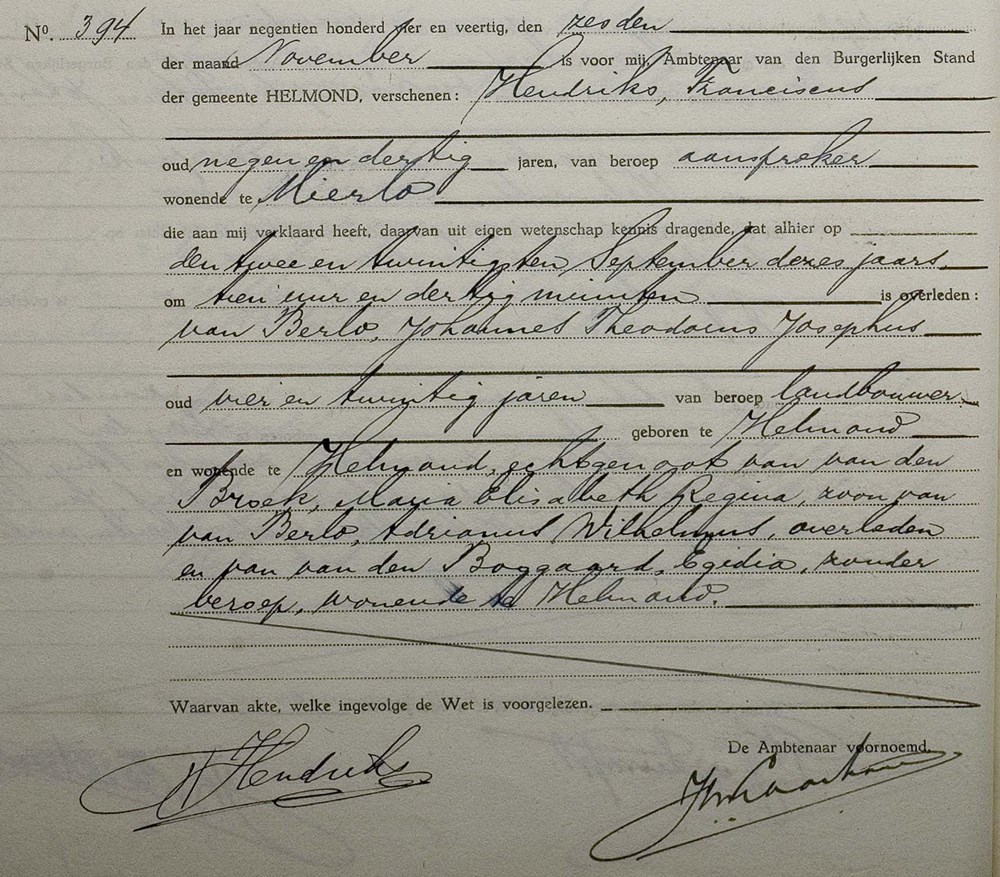 No. 394 In het jaar negentien honderd vier en veertig, den zesden
der maand November is voor mij, Ambtenaar van den Burgerlijken Stand
der gemeente HELMOND, verschenen: Hendriks, Franciscus
oud negen en dertig jaren, van beroep aanspreker
wonende te Mierlo
die aan mij verklaard heeft, daarvan uit eigen wetenschap kennis dragende, dat alhier op
den twee en twintigsten September dezes jaars,
om tien uur en dertig minuten is overleden:
van Berlo, Johannes Theodorus Josephus
oud vier en twintig jaren van beroep landbouwer
geboren te Helmond
en wonende te Helmond, echtgenoot van van den
Broek, Maria Elisabeth Regina, zoon van
van Berlo, Adrianus Wilhelmus, overleden
en van van den Boggaard, Egidia, zonder
beroep, wonende te Helmond.
Waarvan akte, welke ingevolge de Wet is voorgelezen.
De Ambtenaar voornoemd.
Hendriks